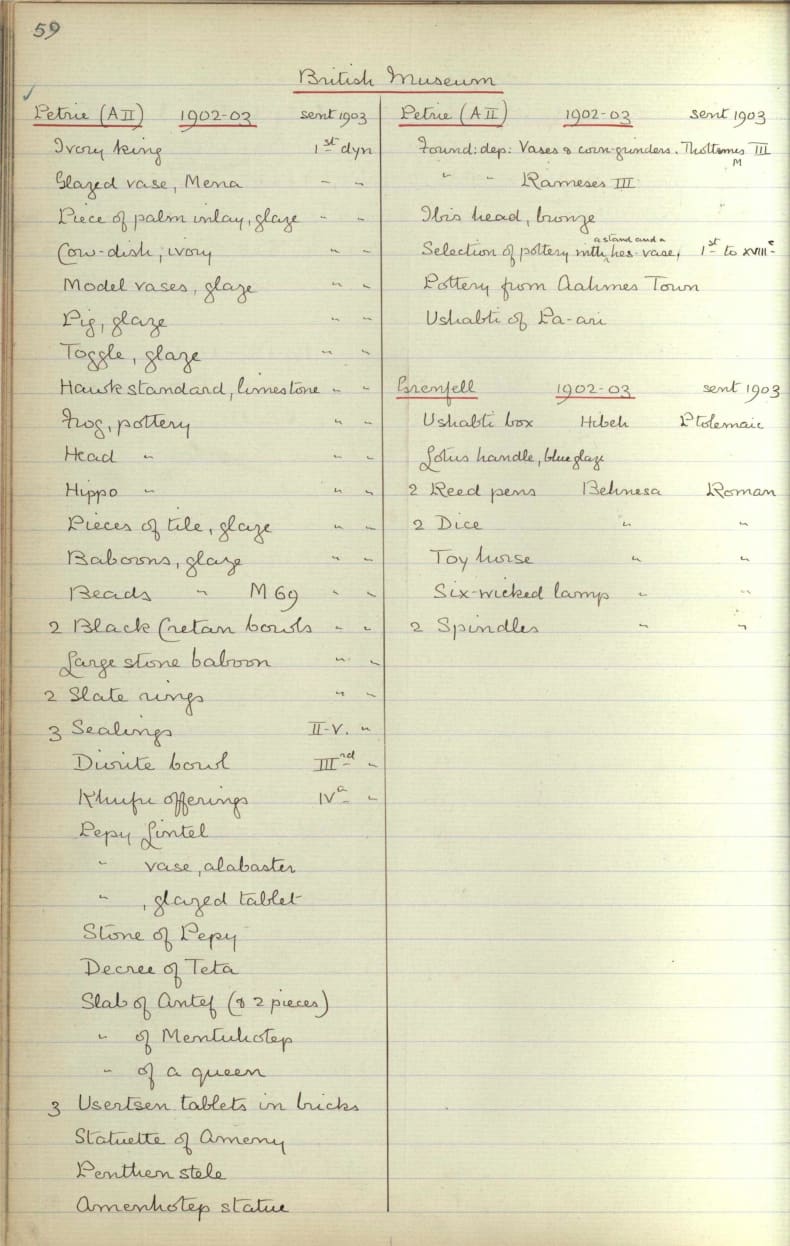 59
British Museum
Petrie (A II) 1902-03 sent 1903
Ivory king 1st dyn
Glazed vase, Mena " "
Piece of palm inlay, glaze " "
Cow-dish, ivory " "
Model vases, glaze " "
Pig, glaze " "
Toggle, glaze " "
Hawk standard, limestone " "
Frog, pottery " "
Head " " "
Hippo " " "
Pieces of tile, glaze " "
Baboons, glaze " "
Beads " M 69 " "
2 Black Cretan bowls " "
Large stone baboon " "
2 Slate rings " "
3 Sealings II-V. "
Diorite bowl IIIrd "
Khufu offerings IVa "
Pepy Lintel
" vase, alabaster
" , glazed tablet
Stone of Pepy
Decree of Teta
Slab of Antef (& 2 pieces)
" of Mentuhotep
" of a queen
3 Usertsen tablets in bricks
Statuette of Ameny
Penthen stele
Amenhotep statue
Petrie (A II) 1902-03 sent 1903
Found: dep: Vases & corn-grinders. Thottmes III
M
" " Rameses III "
Ibis head, bronze
a stand and a
Selection of pottery with hes-vase, 1st to XVIIIe
Pottery from Aahmes Town
Ushabti of Pa-ari
Grenfell 1902-03 sent 1903
Ushabti box Hibeh Ptolemaic
Lotus handle, blue glaze
2 Reed pens Behnesa Roman
2 Dice " "
Toy horse " "
Six-wicked lamp " "
2 Spindles " "